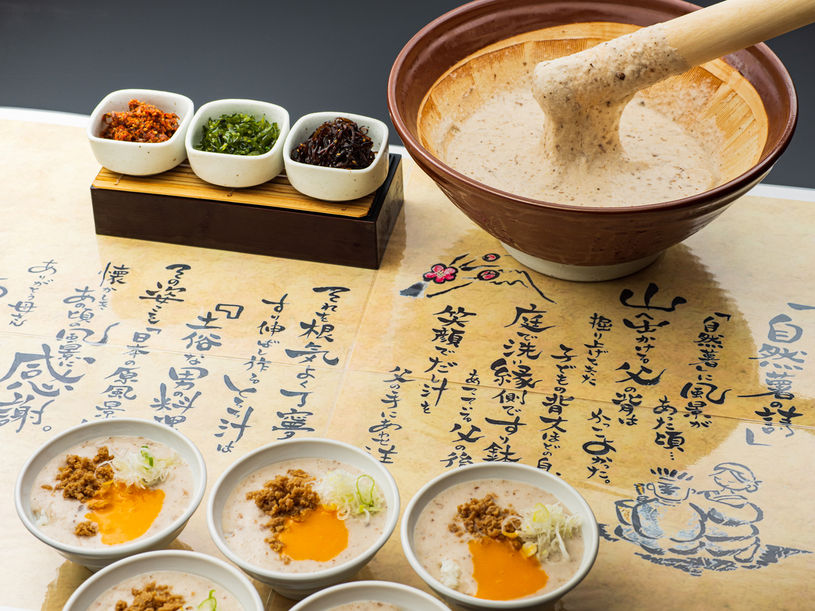 「自然薯の詩」
「自然薯に風景が
あった頃、
山へ出かける父の背は
かっこよかった。
掘り上げてきた
子どもの背丈ほどの自
庭で洗い縁側ですり鉢
父の後
笑顔でだし汁も
それも根気よく丁寧
すり伸ばし作るとろろ汁は
『土俗な男の料理
その姿こそ
「日本の原風景
懐かしき
あの頃の風景に
ありがとう母さん
感謝。